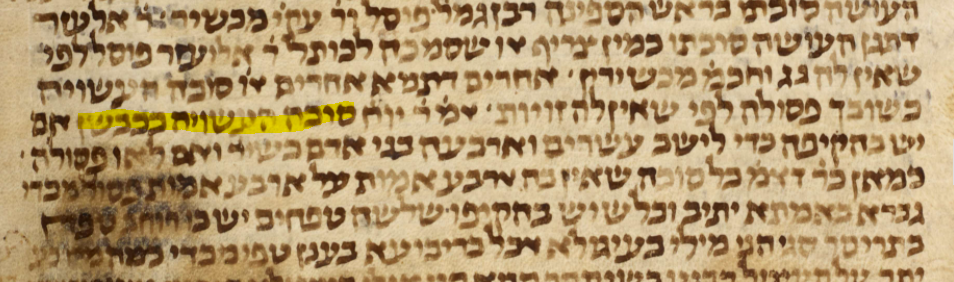 העושה סוכתו בראש הספינה רבן גמל׳ פוסל ור׳ עק׳ מכשיר ר׳ אלעזר
דתנן העושה סוכתו כמין צריף או שסמכה לכותל ר׳ אליעזר פוסל לפי
שאין לה גג וחכמ׳ מכשירין׳ אחרים דתניא אחרים או׳ סוכה העשויה
כשובך פסולה לפי שאין לה זויות׳ אמ׳ ר׳ יוח׳ סוכה העשויה ככבשן אם
יש בהקיפה כדי לישב עשרים וארבעה בני אדם כשיר׳ ואם לאו פסולה׳
כמאן כר׳ דאמ׳ כל סוכה שאין בה ארבע אמות על ארבע אמות פסול׳ מכדי
גברא באמתא יתיב וכל שיש בהקיפו שלשה טפחים יש בו רוחב טפח
בתריסר סגי הני מילי בעיגולא אבל בריבועא בענן טפי מכדי כמה מרובע